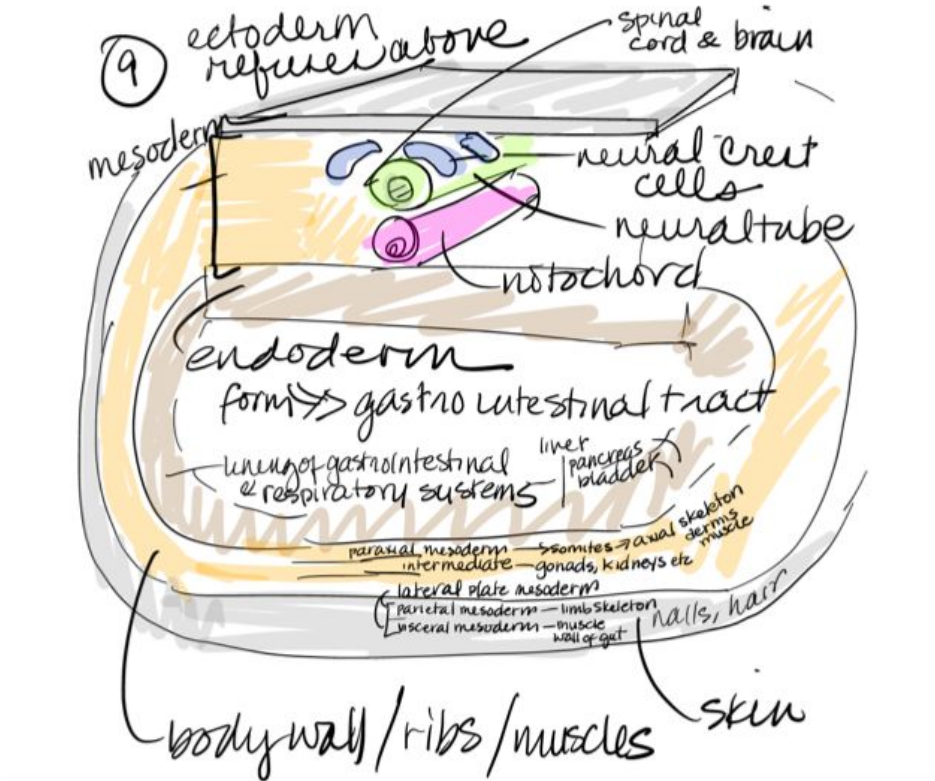 9
ectoderm
refuses above
spinal
cord & brain
mesoderm
neural crest
cells
neural tube
notochord
endoderm
forms>> gastrointestinal tract
lining of gastrointestinal
& respiratory systems
liver
pancreas
bladder
paraxial mesoderm — somites → axial skeleton
dermis
muscle
intermediate — gonads, kidneys etc
lateral plate mesoderm
parietal mesoderm — limb skeleton
visceral mesoderm — muscle
wall of gut
nails, hair
skin
body wall/ribs/muscles